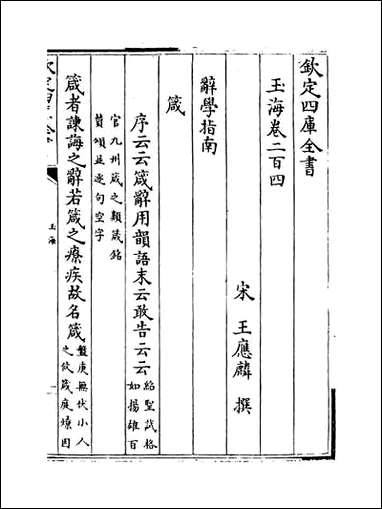 欽定四庫全書
玉海卷二百四
宋 王應麟 撰
辭學指南
箴
序云云箴辭用韻語末云敢告云云
紹聖試格
如揚雄百
官九州箴之類箴銘
贊頌並逐句空字
箴者諫誨之辭若箴之療疾故名箴
盤庚無伏小人
之攸箴庭燎因
玉海